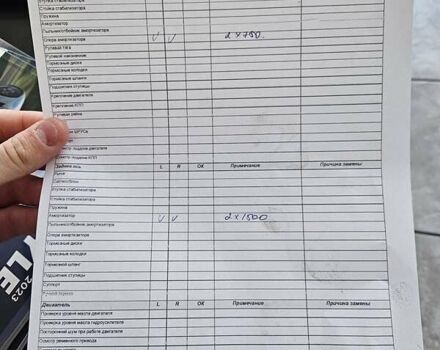 Втулка стабилизатора
Стойка стабилизатора
Пружина
Амортизатор
Пыльник/отбойник амортизатора
Опора амортизатора V V 2 x 750
Рулевая тяга
Рулевой наконечник
Тормозные диски
Тормозные колодки
Тормозные шланги
Подшипник ступицы
Крепление двигателя
Крепление КПП
Рулевая рейка
ШРУСы
поддона двигателя
поддона КПП
Задняя ось L R OK Примечание Причина замены
Рычаг
Сайлентблок
Втулка стабилизатора
Стойка стабилизатора
Пружина
Амортизатор V V 2 x 1500
Пыльник/отбойник амортизатора
Опора амортизатора
Тормозные диски
Тормозные колодки
Тормозной шланг
Подшипник ступицы
Суппорт
Ручной тормоз
Двигатель L R OK Примечание Причина замены
Проверка уровня масла двигателя
Проверка уровня масла гидроусилителя
Посторонний шум при работе двигателя
Осмотр ременного привода
2023